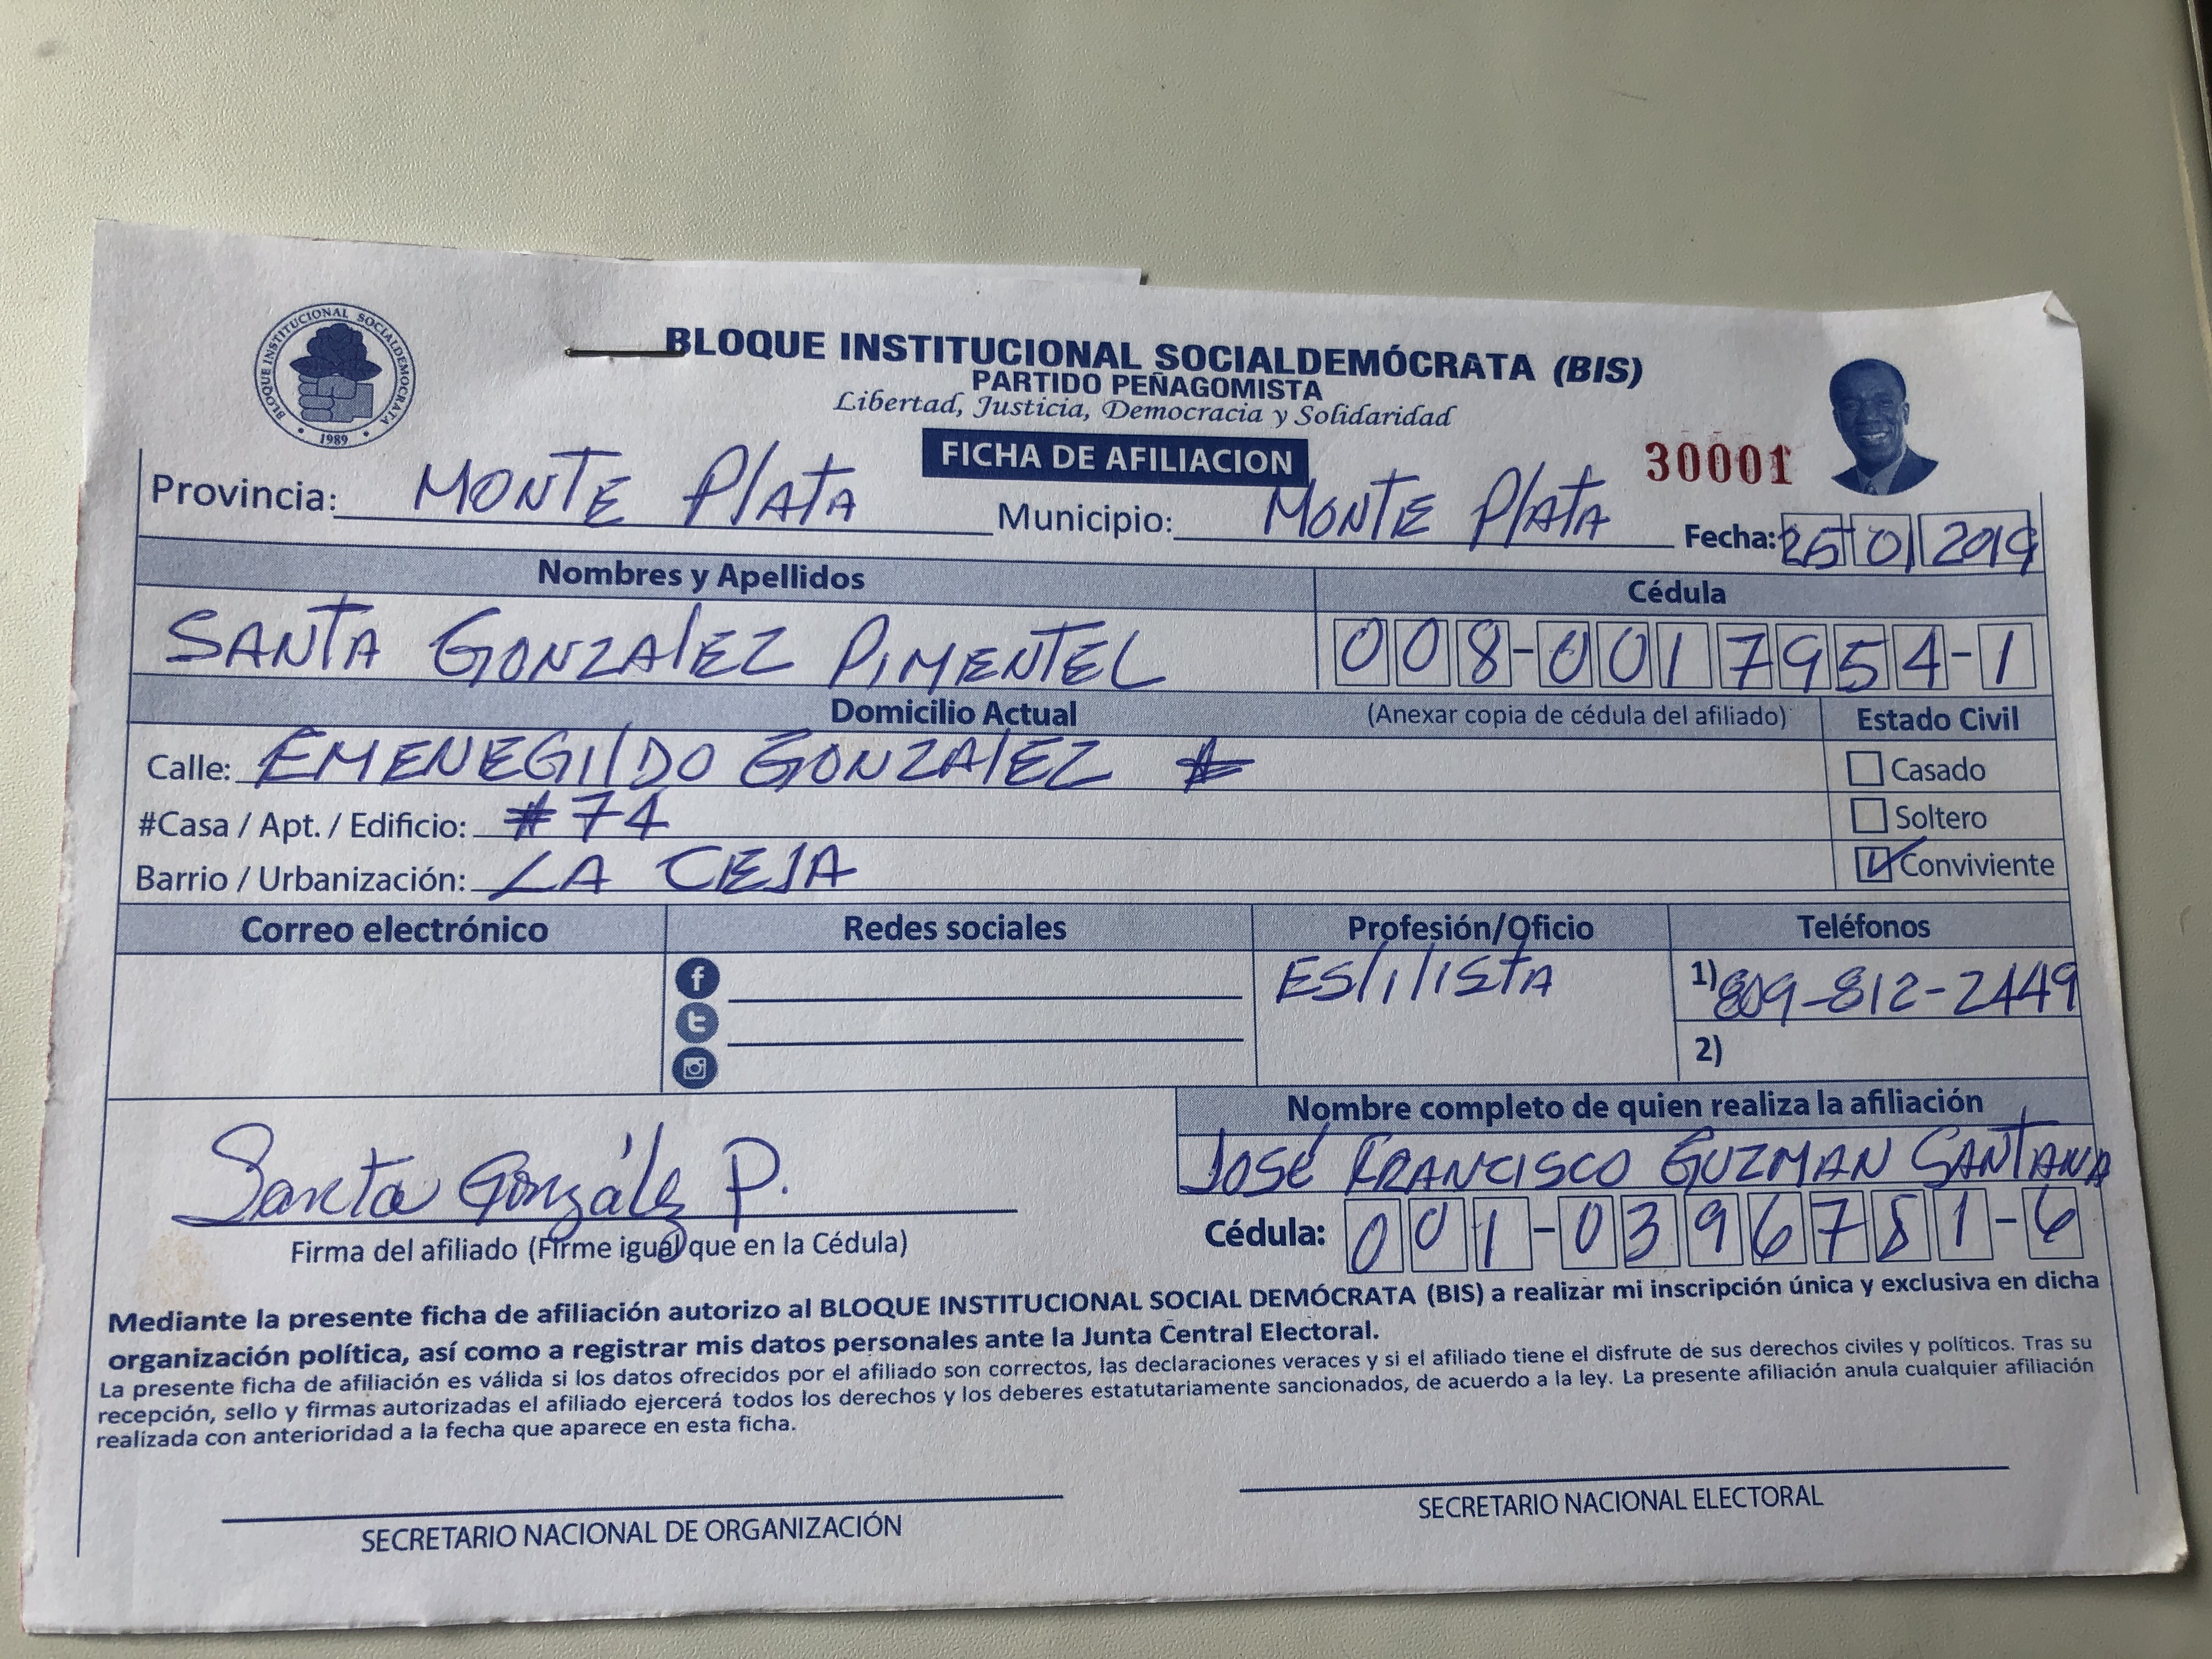 BLOQUE INSTITUCIONAL SOCIALDEMÓCRATA
1989
BLOQUE INSTITUCIONAL SOCIALDEMÓCRATA (BIS)
PARTIDO PEÑAGOMISTA
Libertad, Justicia, Democracia y Solidaridad
FICHA DE AFILIACION
30001
Provincia: MONTE PlATA Municipio: MONTE PlATA Fecha: 25 01 2019
Nombres y Apellidos Cédula
SANTA GONZAlEZ PIMENTEL 008-0017954-1
Domicilio Actual (Anexar copia de cédula del afiliado) Estado Civil
Calle: EMENEGIlDO GONZAlEZ # Casado
#Casa / Apt. / Edificio: #74 Soltero
Barrio / Urbanización: LA CEJA Conviviente
Correo electrónico Redes sociales Profesión/Oficio Teléfonos
EStilISTA 1) 809-812-2449
2)
Nombre completo de quien realiza la afiliación
JOSÉ FRANCISCO GUZMAN SANTANA
Santa González P.
Firma del afiliado (Firme igual que en la Cédula) Cédula: 001-0396781-6
Mediante la presente ficha de afiliación autorizo al BLOQUE INSTITUCIONAL SOCIAL DEMÓCRATA (BIS) a realizar mi inscripción única y exclusiva en dicha
organización política, así como a registrar mis datos personales ante la Junta Central Electoral.
La presente ficha de afiliación es válida si los datos ofrecidos por el afiliado son correctos, las declaraciones veraces y si el afiliado tiene el disfrute de sus derechos civiles y políticos. Tras su
recepción, sello y firmas autorizadas el afiliado ejercerá todos los derechos y los deberes estatutariamente sancionados, de acuerdo a la ley. La presente afiliación anula cualquier afiliación
realizada con anterioridad a la fecha que aparece en esta ficha.
SECRETARIO NACIONAL DE ORGANIZACIÓN SECRETARIO NACIONAL ELECTORAL